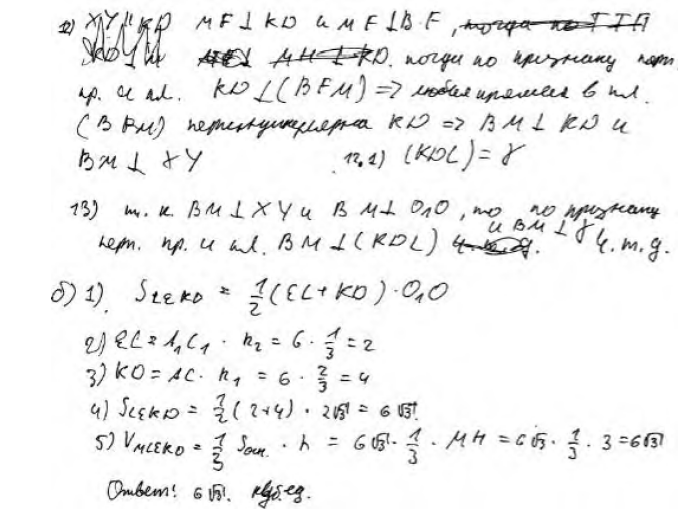 12) XY || KD MF ⊥ KD и MF ⊥ BF,
тогда по признаку перп.
пр. и пл. KD ⊥ (BFM) => любая прямая в пл.
(BFM) перпендикулярна KD => BM ⊥ KD и
BM ⊥ XY 12.1) (KDL) = γ
13) т. к. BM ⊥ XY и BM ⊥ O₁O, то по признаку
перп. пр. и пл. BM ⊥ (KDL) и BM ⊥ γ ч. т. д.
б) 1) S_LEKD = 1/2 (EL + KD) · O₁O
2) EL = A₁C₁ · k₂ = 6 · 1/3 = 2
3) KD = AC · k₁ = 6 · 2/3 = 4
4) S_LEKD = 1/2 (2+4) · 2√3 = 6√3
5) V_MLEKD = 1/3 S осн. · h = 6√3 · 1/3 · MH = 6√3 · 1/3 · 3 = 6√3
Ответ: 6√3. куб. ед.